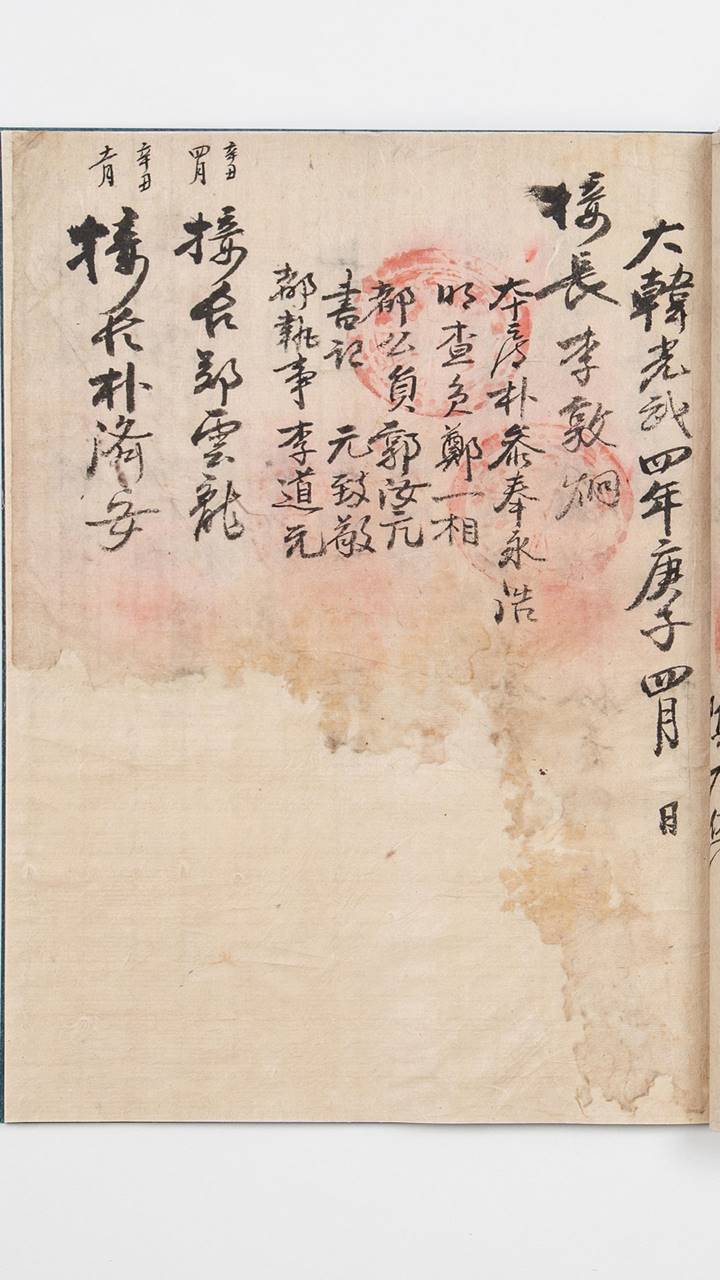 大韓光武四年庚子四月 日
接長李敦炯
本房朴參奉永浩
明查負鄭一相
都公負郭汝元
書記 元致敬
都執事李道元
辛丑
四月
接長鄭雲龍
辛丑
十一月
接長朴濟安